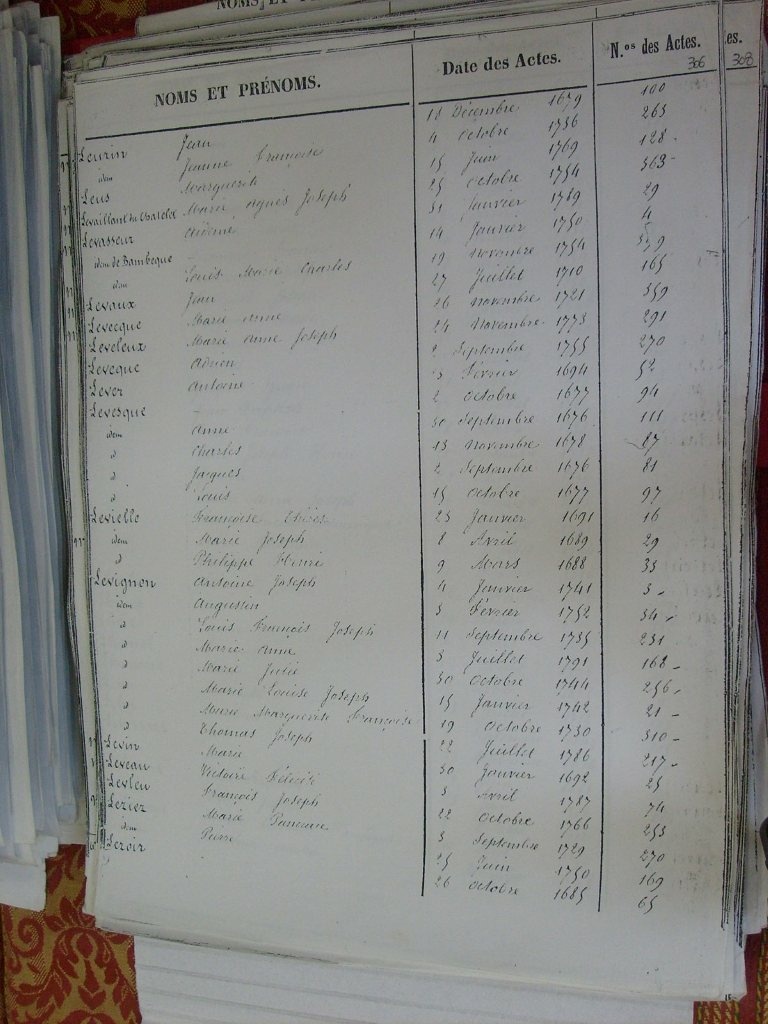 NOMS ET PRÉNOMS. Date des Actes. N.os des Actes.
306 308
Leurin Jean 11 Décembre 1679 100
idem Jeanne Françoise 4 octobre 1736 263
Leus Marguerite 15 Juin 1769 128 -
Levaillant du Chatelet Marie Agnès Joseph 25 octobre 1754 363 -
Levasseur 31 Janvier 1789 29
idem de Bambecque 14 Janvier 1750 4
idem Louis Marie Charles 19 Novembre 1754
Levaux Jean 27 Juillet 1710 165
Levecque Marie anne 26 Novembre 1721 359
Leveleux Marie anne Joseph 24 Novembre 1773 291
Leveque Adrien 2 Septembre 1755 270
Lever Antoine 3 Février 1694 52
Levesque - 2 octobre 1677 94
idem anne 30 Septembre 1676 111
d Charles 13 Novembre 1678 87
d Jacques 2 Septembre 1676 81
d Louis 15 octobre 1677 97
Levielle Françoise Thérèse 23 Janvier 1691 16
idem Marie Joseph 8 Avril 1689 29
d Philippe Henri 9 Mars 1688 33
Levignon Antoine Joseph 4 Janvier 1741 3 -
idem Augustin 3 Février 1752 34 -
d Louis François Joseph 11 Septembre 1735 231
d Marie anne 3 Juillet 1791 168 -
d Marie Julie 30 octobre 1744 256 -
d Marie Louise Joseph 15 Janvier 1742 21 -
d Marie Marguerite Françoise 19 octobre 1730 310 -
d Thomas Joseph 22 Juillet 1786 217 -
Levin Marie 30 Janvier 1692 25
Leveau Victoire Félicité 3 Avril 1787 74
Levleu François Joseph 22 octobre 1766 253
Leziez Marie 3 Septembre 1729 270
idem 25 Juin 1750 169
Leroir Pierre 26 octobre 1685 65